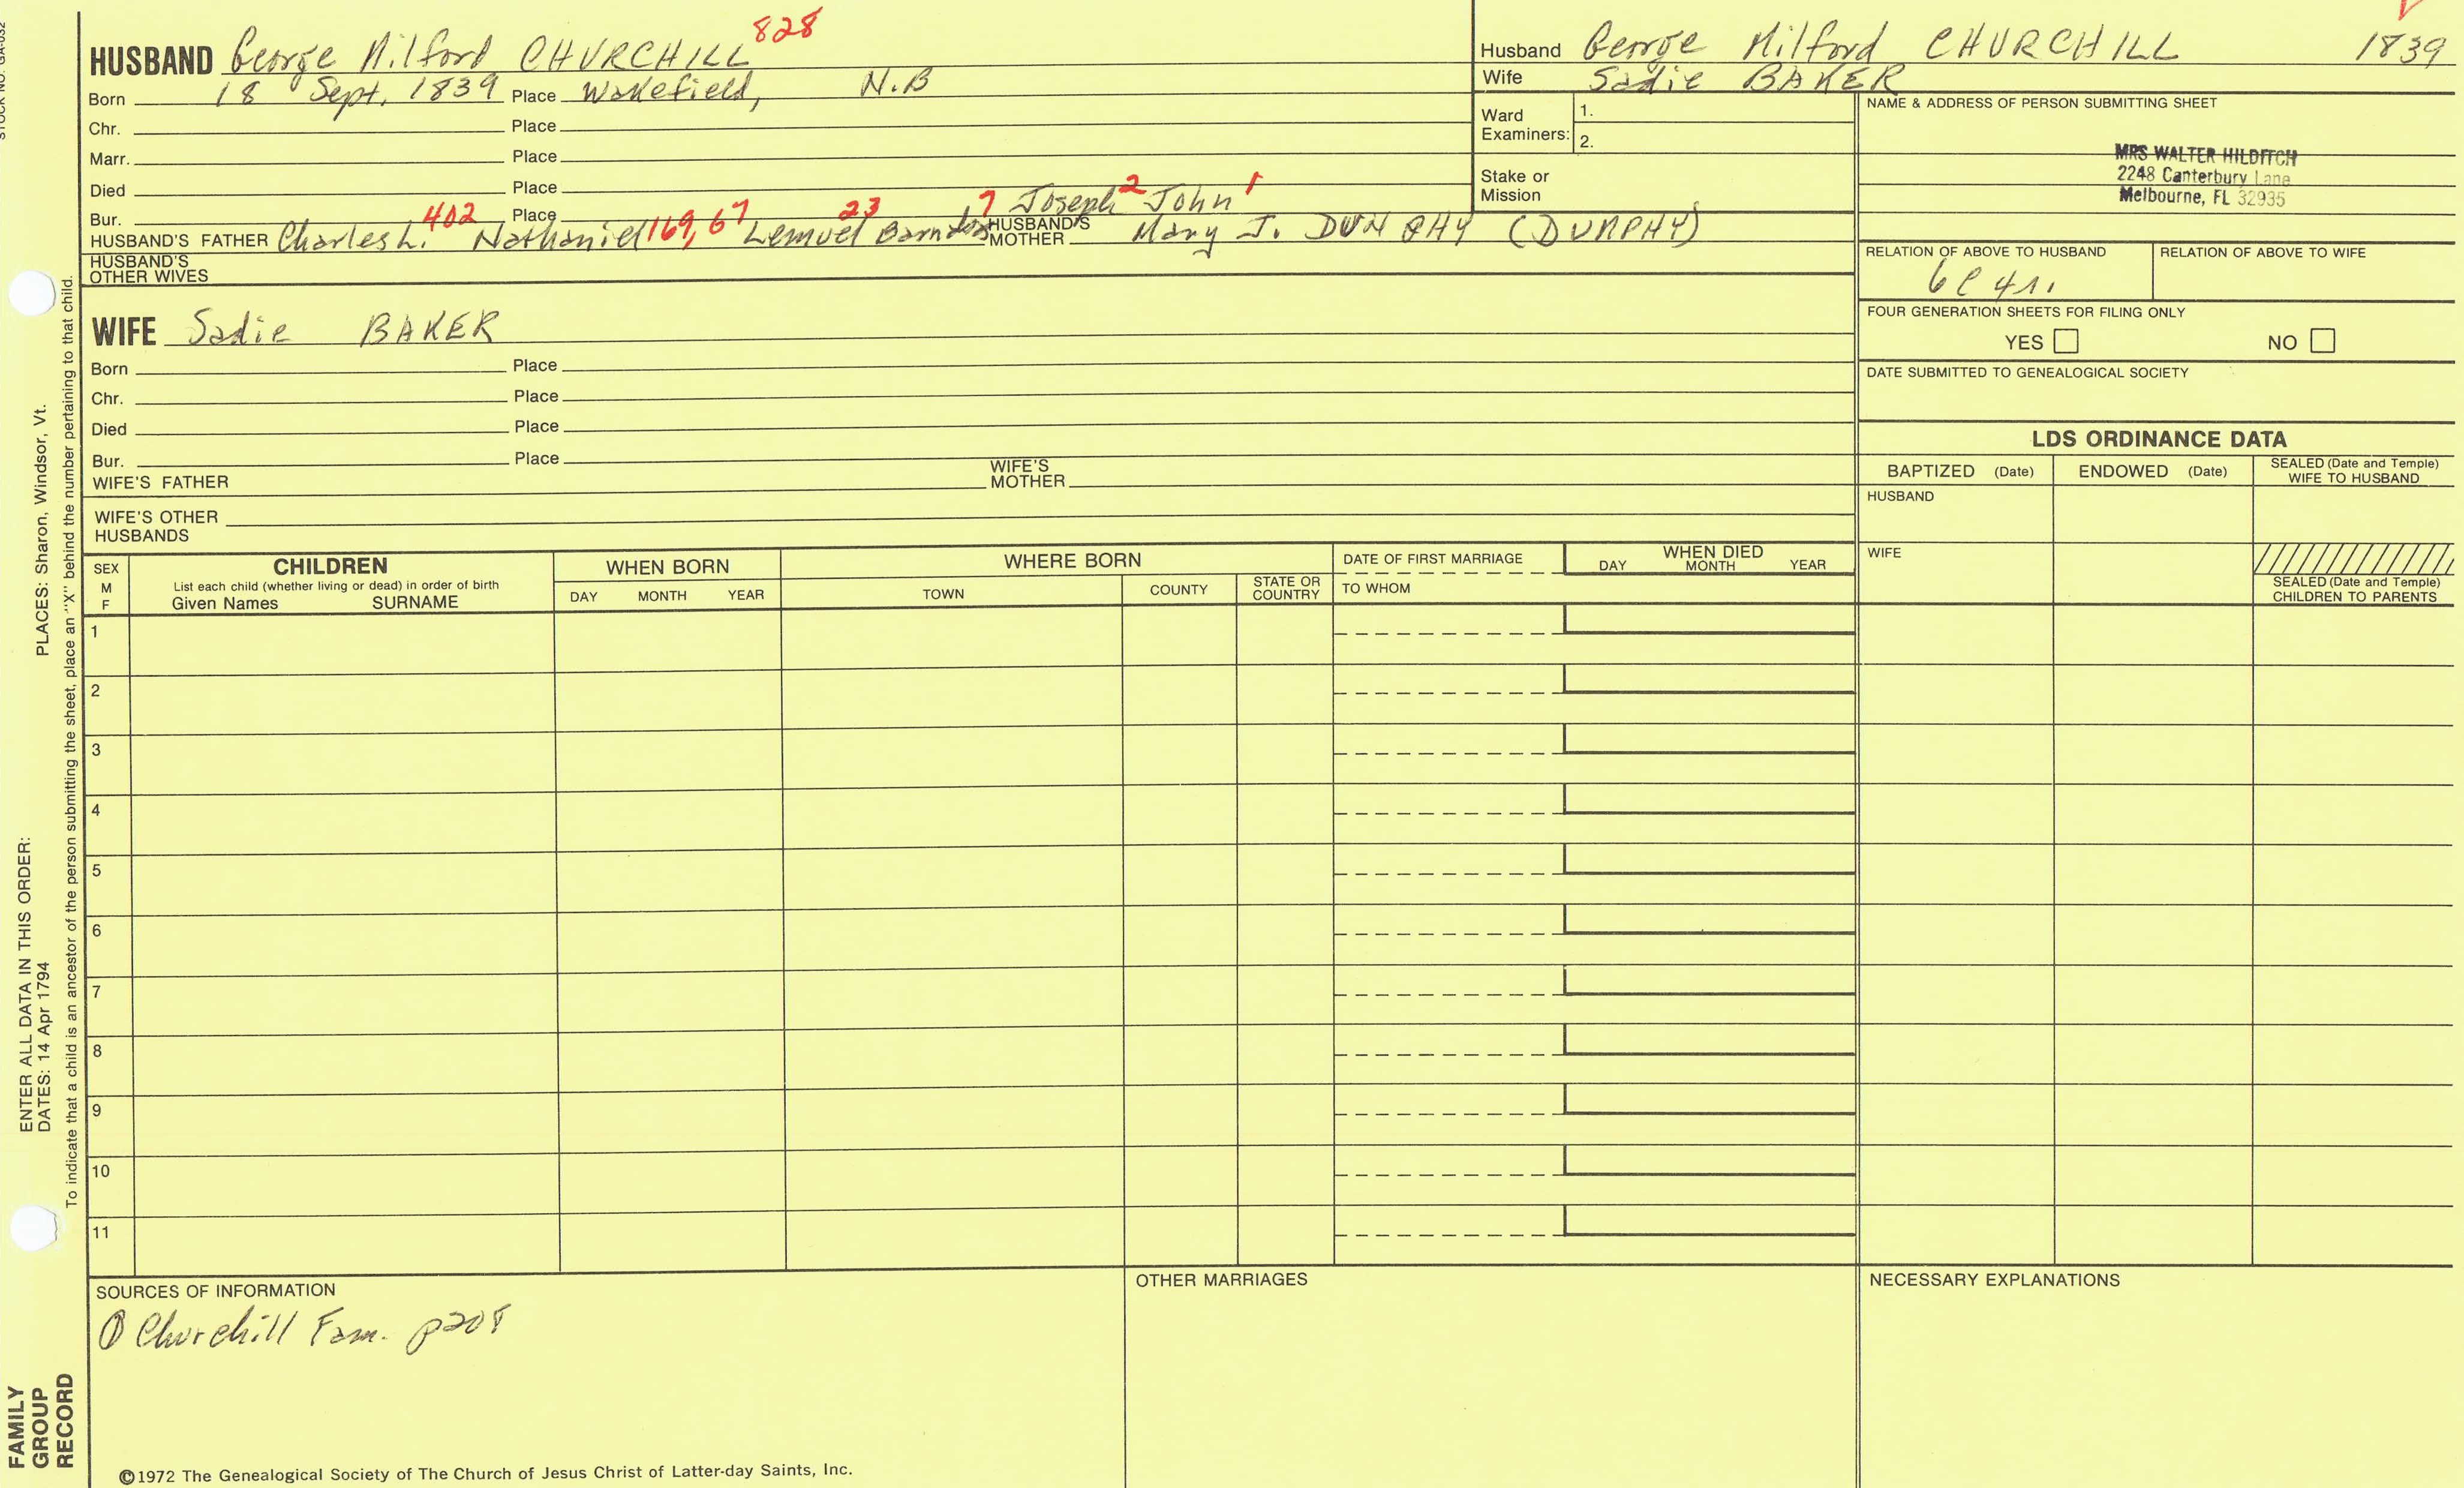 STOCK NO. GA-032
HUSBAND George Milford CHURCHILL 828
Born 18 Sept. 1839 Place Wakefield, N.B
Chr. Place
Marr. Place
Died Place
Bur. Place
HUSBAND'S FATHER Charles L. 402 Nathaniel 169, 67 Lemuel 23 Barnabas 7 Joseph 2 John 1
HUSBAND'S MOTHER Mary J. DUNPHY (DURPHY)
HUSBAND'S OTHER WIVES
WIFE Sadie BAKER
Born Place
Chr. Place
Died Place
Bur. Place
WIFE'S FATHER WIFE'S MOTHER
WIFE'S OTHER HUSBANDS
Husband George Milford CHURCHILL 1839
Wife Sadie BAKER
Ward Examiners: 1.
2.
Stake or Mission
NAME & ADDRESS OF PERSON SUBMITTING SHEET
MRS WALTER HILDITCH
2248 Canterbury Lane
Melbourne, FL 32935
RELATION OF ABOVE TO HUSBAND RELATION OF ABOVE TO WIFE
6C 4r.
FOUR GENERATION SHEETS FOR FILING ONLY
YES NO
DATE SUBMITTED TO GENEALOGICAL SOCIETY
LDS ORDINANCE DATA
BAPTIZED (Date) ENDOWED (Date) SEALED (Date and Temple) WIFE TO HUSBAND
HUSBAND
WIFE
SEALED (Date and Temple) CHILDREN TO PARENTS
SEX M F
CHILDREN
List each child (whether living or dead) in order of birth
Given Names SURNAME
WHEN BORN
DAY MONTH YEAR
WHERE BORN
TOWN COUNTY STATE OR COUNTRY
DATE OF FIRST MARRIAGE
TO WHOM
WHEN DIED
DAY MONTH YEAR
1
2
3
4
5
6
7
8
9
10
11
SOURCES OF INFORMATION
① Churchill Fam. p208
OTHER MARRIAGES
NECESSARY EXPLANATIONS
©1972 The Genealogical Society of The Church of Jesus Christ of Latter-day Saints, Inc.
ENTER ALL DATA IN THIS ORDER:
DATES: 14 Apr 1794 PLACES: Sharon, Windsor, Vt.
To indicate that a child is an ancestor of the person submitting the sheet, place an "X" behind the number pertaining to that child.
FAMILY
GROUP
RECORD